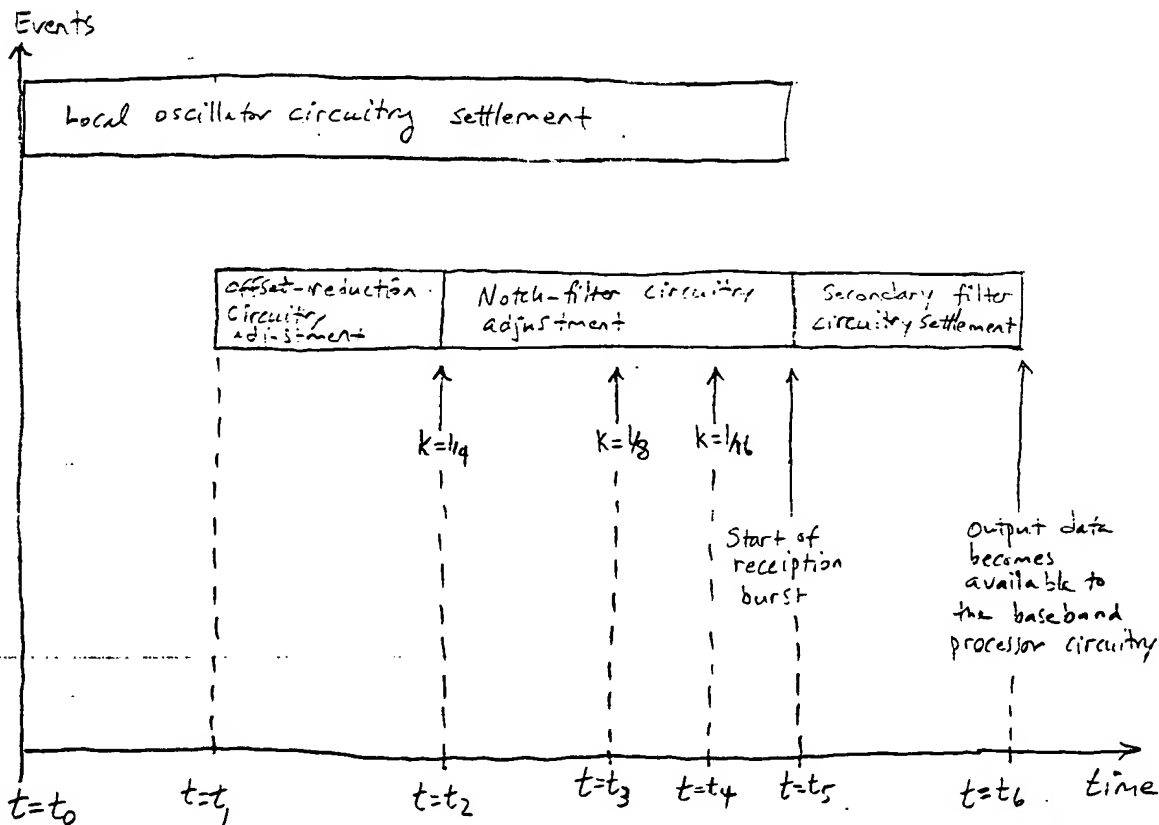 Events
Local oscillator circuitry settlement
offset-reduction
circuitry
adjustment
Notch-filter circuitry
adjustment
Secondary filter
circuitry settlement
k=1/4
k=1/8
k=1/16
Start of
receiption
burst
Output data
becomes
available to
the baseband
processor circuitry
t=t0
t=t1
t=t2
t=t3
t=t4
t=t5
t=t6
time